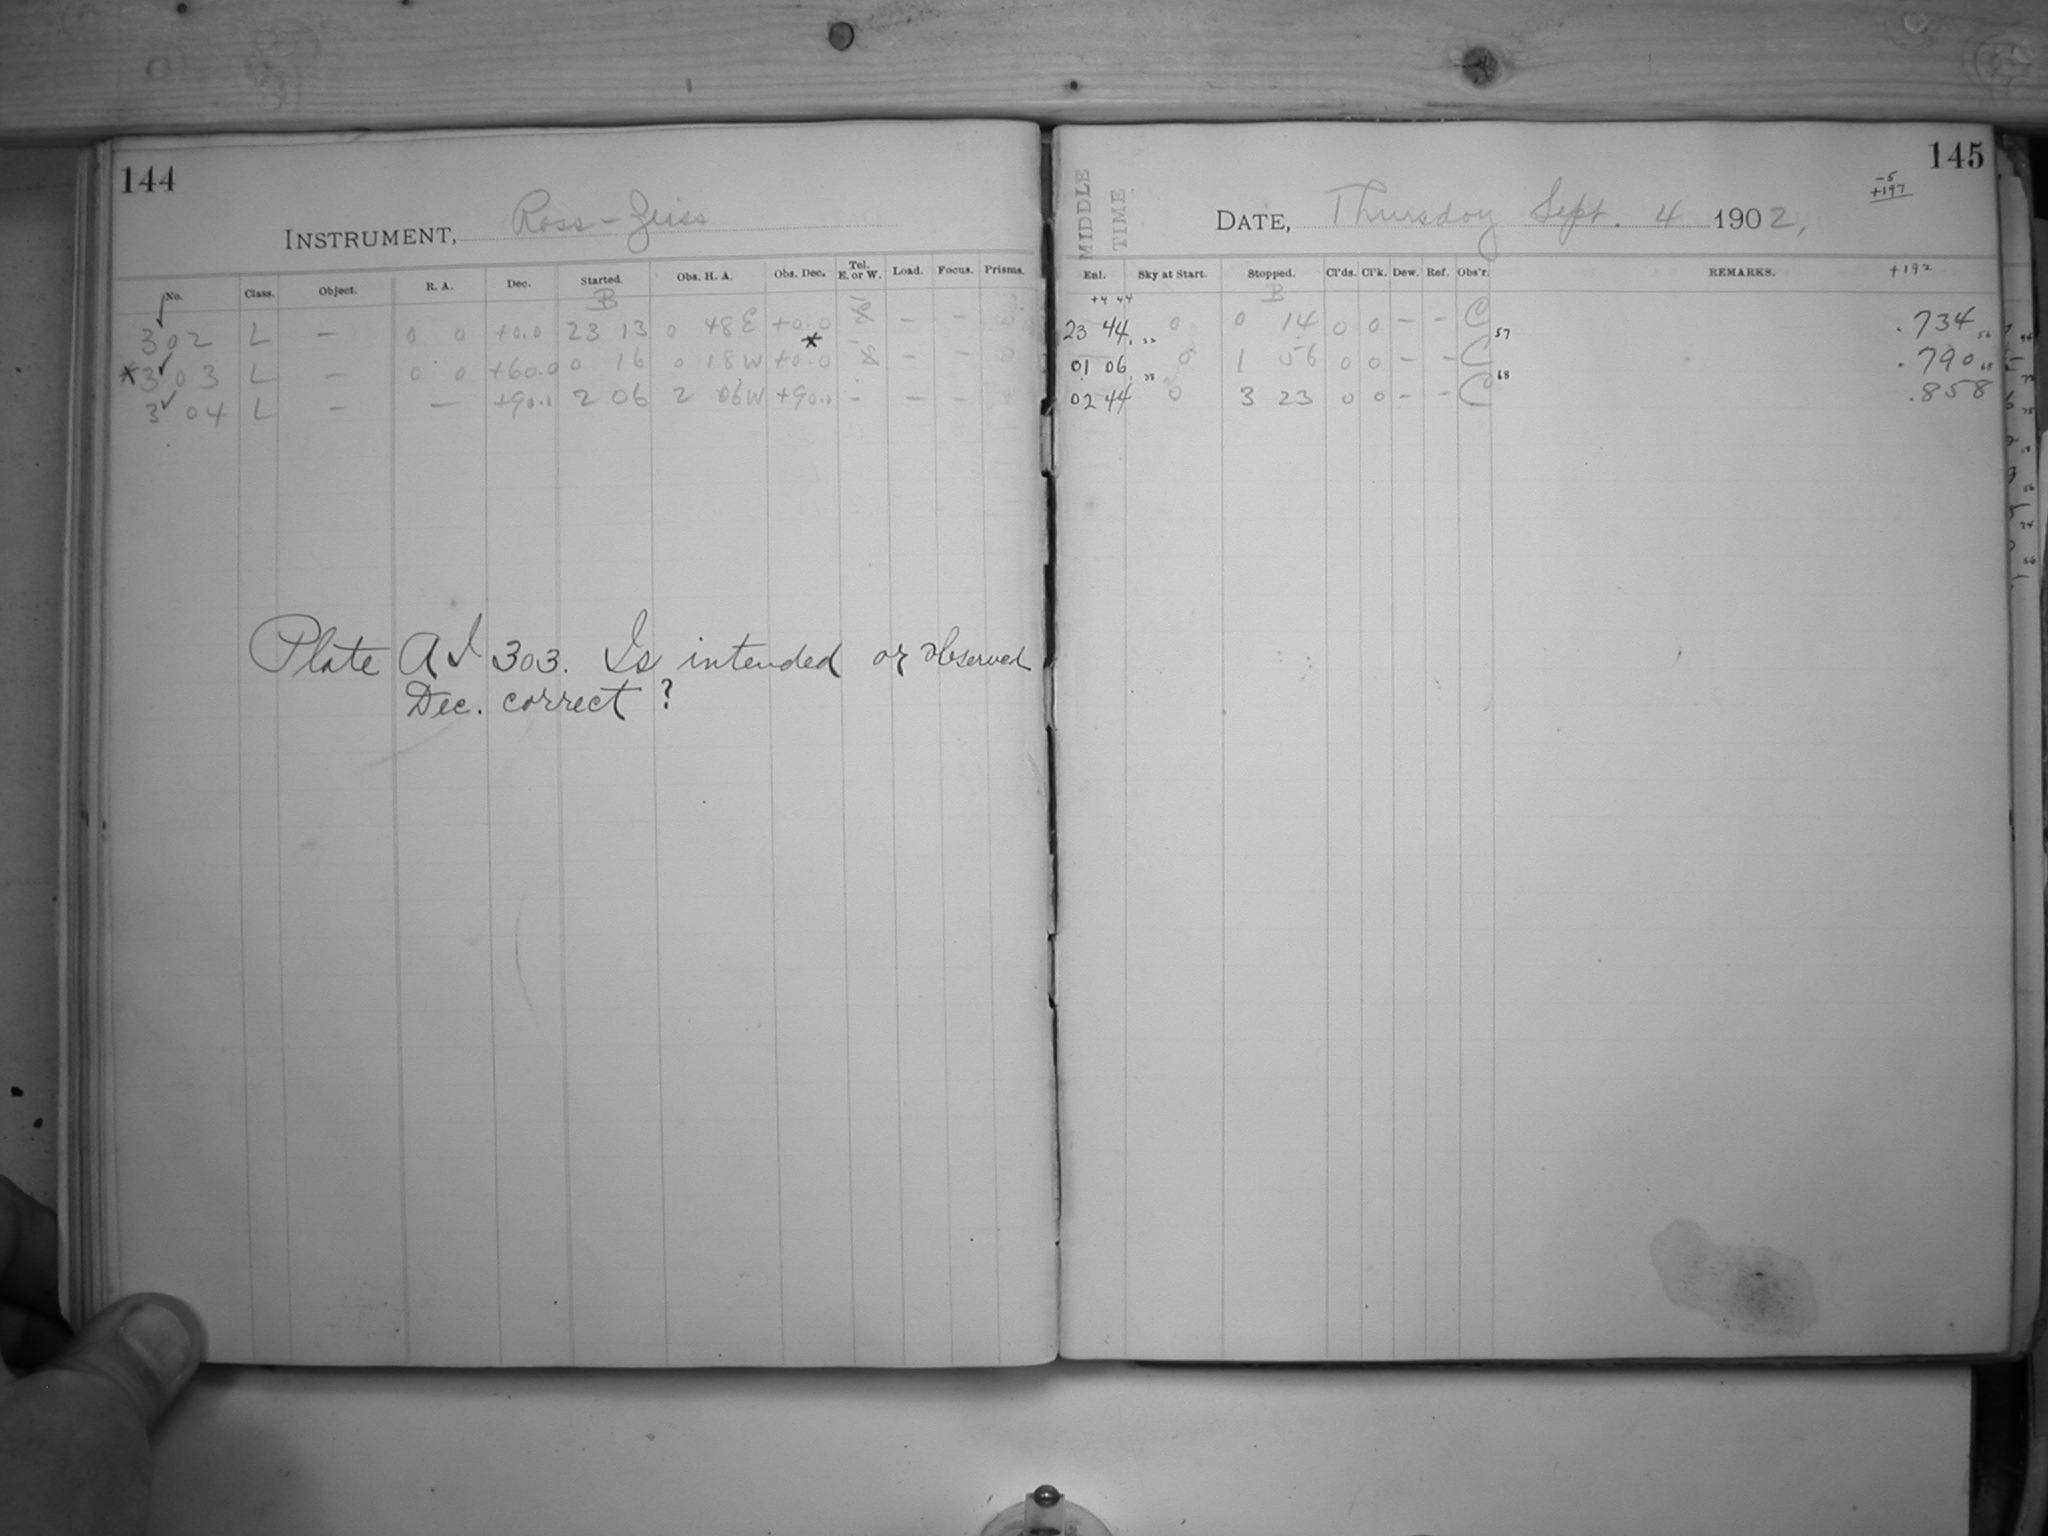 144
INSTRUMENT, Ross-Zeiss
No. Class. Object. R. A. Dec. Started. Obs. H. A. Obs. Dec. Tel. E. or W. Load. Focus. Prisms.
B
302 L — 0 0 +0.0 23 13 0 48E +0.0 — —
*303 L — 0 0 +60.0 0 16 0 18W +0.0 * — —
304 L — — +90.0 2 06 2 06W +90.0 - — —
Plate AI 303. Is intended or observed
Dec. correct?
145
-5
+197
MIDDLE
TIME
DATE, Thursday Sept. 4 1902,
Enl. Sky at Start. Stopped. Cl'ds. Cl'k. Dew. Ref. Obs'r. REMARKS. +192
+4 44 B
23 44 0 0 14 0 0 - - C 57 .734
01 06 0 1 56 0 0 - - C 68 .790
02 44 0 3 23 0 0 - - C .858